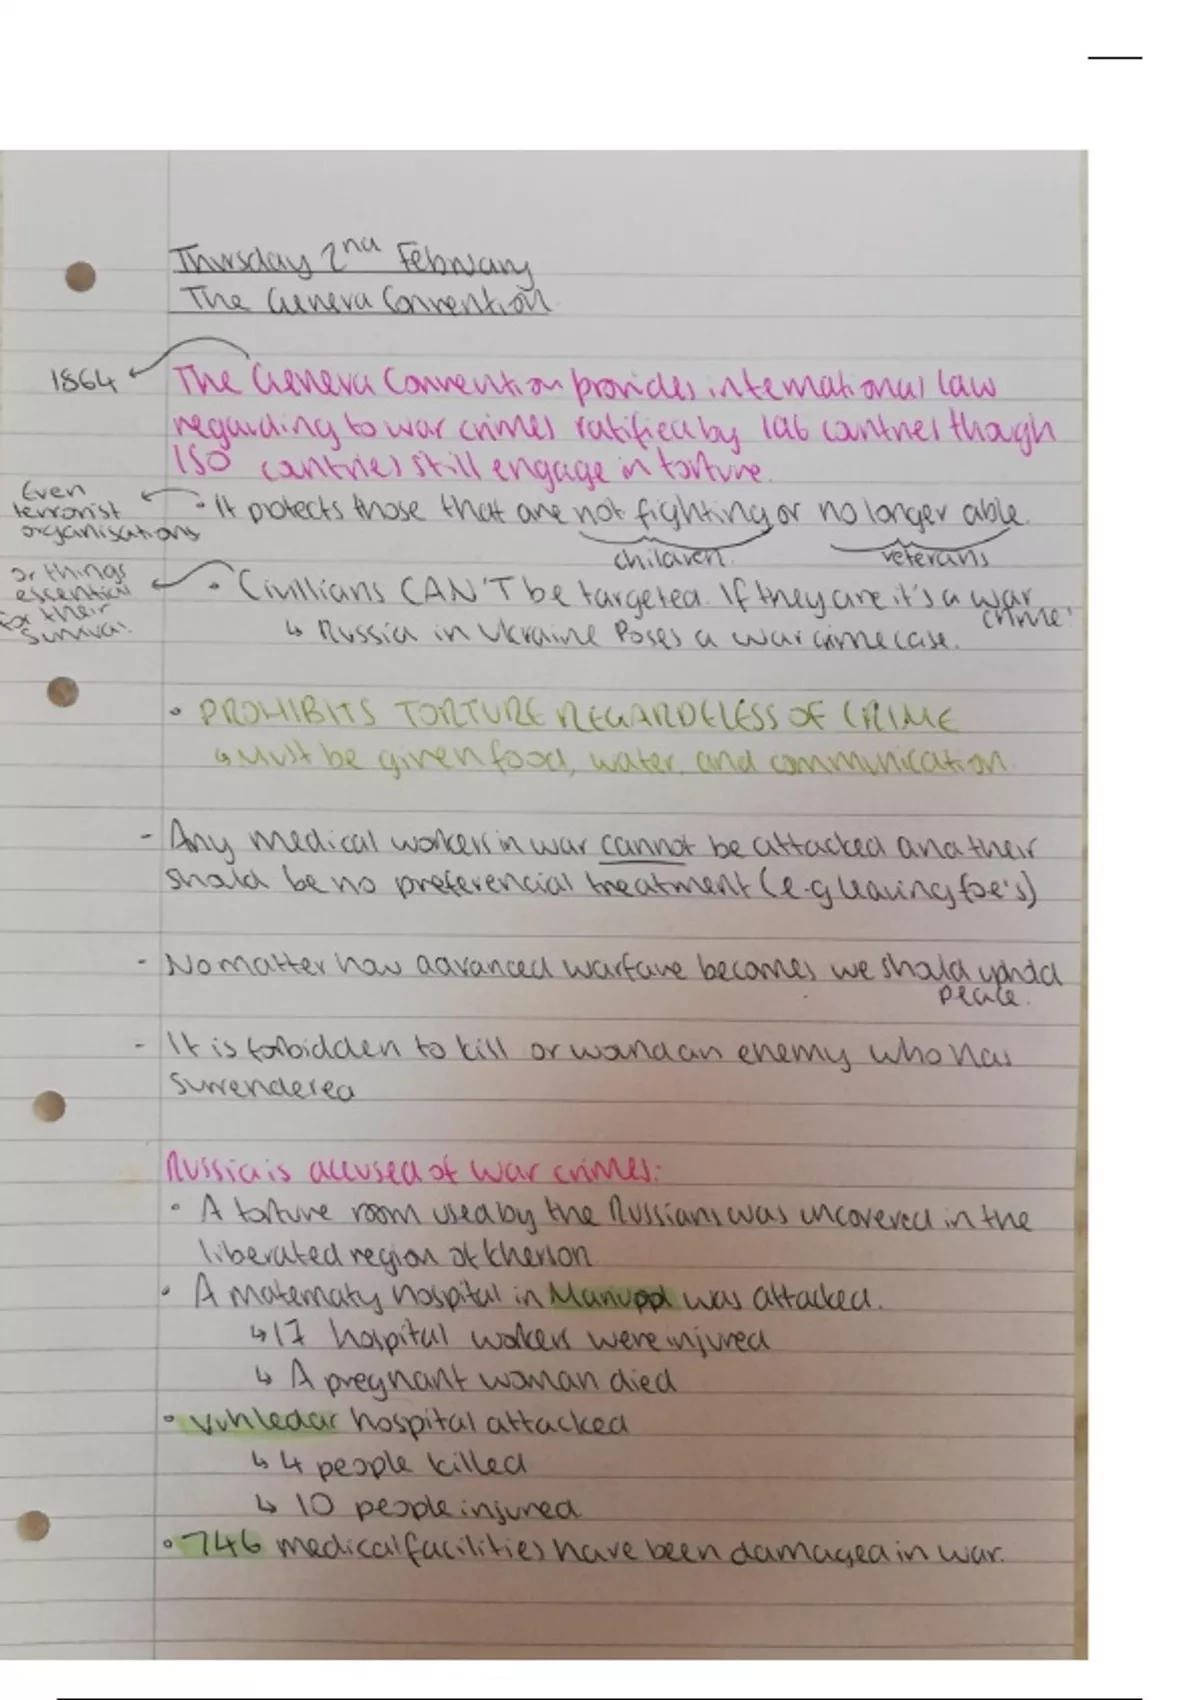 Thursday 2nd February
The Geneva Convention
1864
The Geneva Convention provides international law
regarding to war crimes ratified by 196 countries though
150 countries still engage in torture.
Even
terrorist
organisations
• It protects those that are not fighting or no longer able.
children.
veterans
or things
escential
for their
survival.
• Civillians CAN'T be targeted. If they are it's a war
crime!
↳ Russia in Ukraine Poses a war crime case.
• PROHIBITS TORTURE REGARDELESS OF CRIME
↳ Must be given food, water, and communication.
- Any medical workers in war cannot be attacked and their
should be no preferencial treatment (e.g leaving foe's)
- No matter how advanced warfare becomes we should uphold
peace.
- It is forbidden to kill or wound an enemy who has
surrendered
Russia is accused of war crimes:
• A torture room used by the Russians was uncovered in the
liberated region of Kherson.
• A maternaty hospital in Mariupol was attacked.
↳ 17 hospital workers were injured
↳ A pregnant woman died
• Vuhledar hospital attacked
↳ 4 people killed
↳ 10 people injured
• 746 medical facilities have been damaged in war.